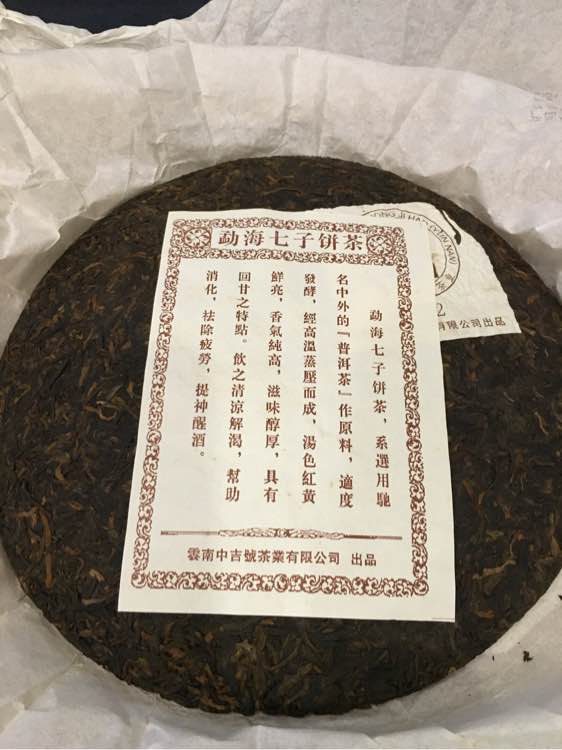 勐海七子饼茶
勐海七子饼茶，系選用馳
名中外的『普洱茶』作原料，適度
發酵，經高溫蒸壓而成，湯色紅黃
鮮亮，香氣純高，滋味醇厚，具有
回甘之特點。飲之清涼解渴，幫助
消化，祛除疲勞，提神醒酒。
雲南中吉號茶業有限公司 出品
2
有限公司出品